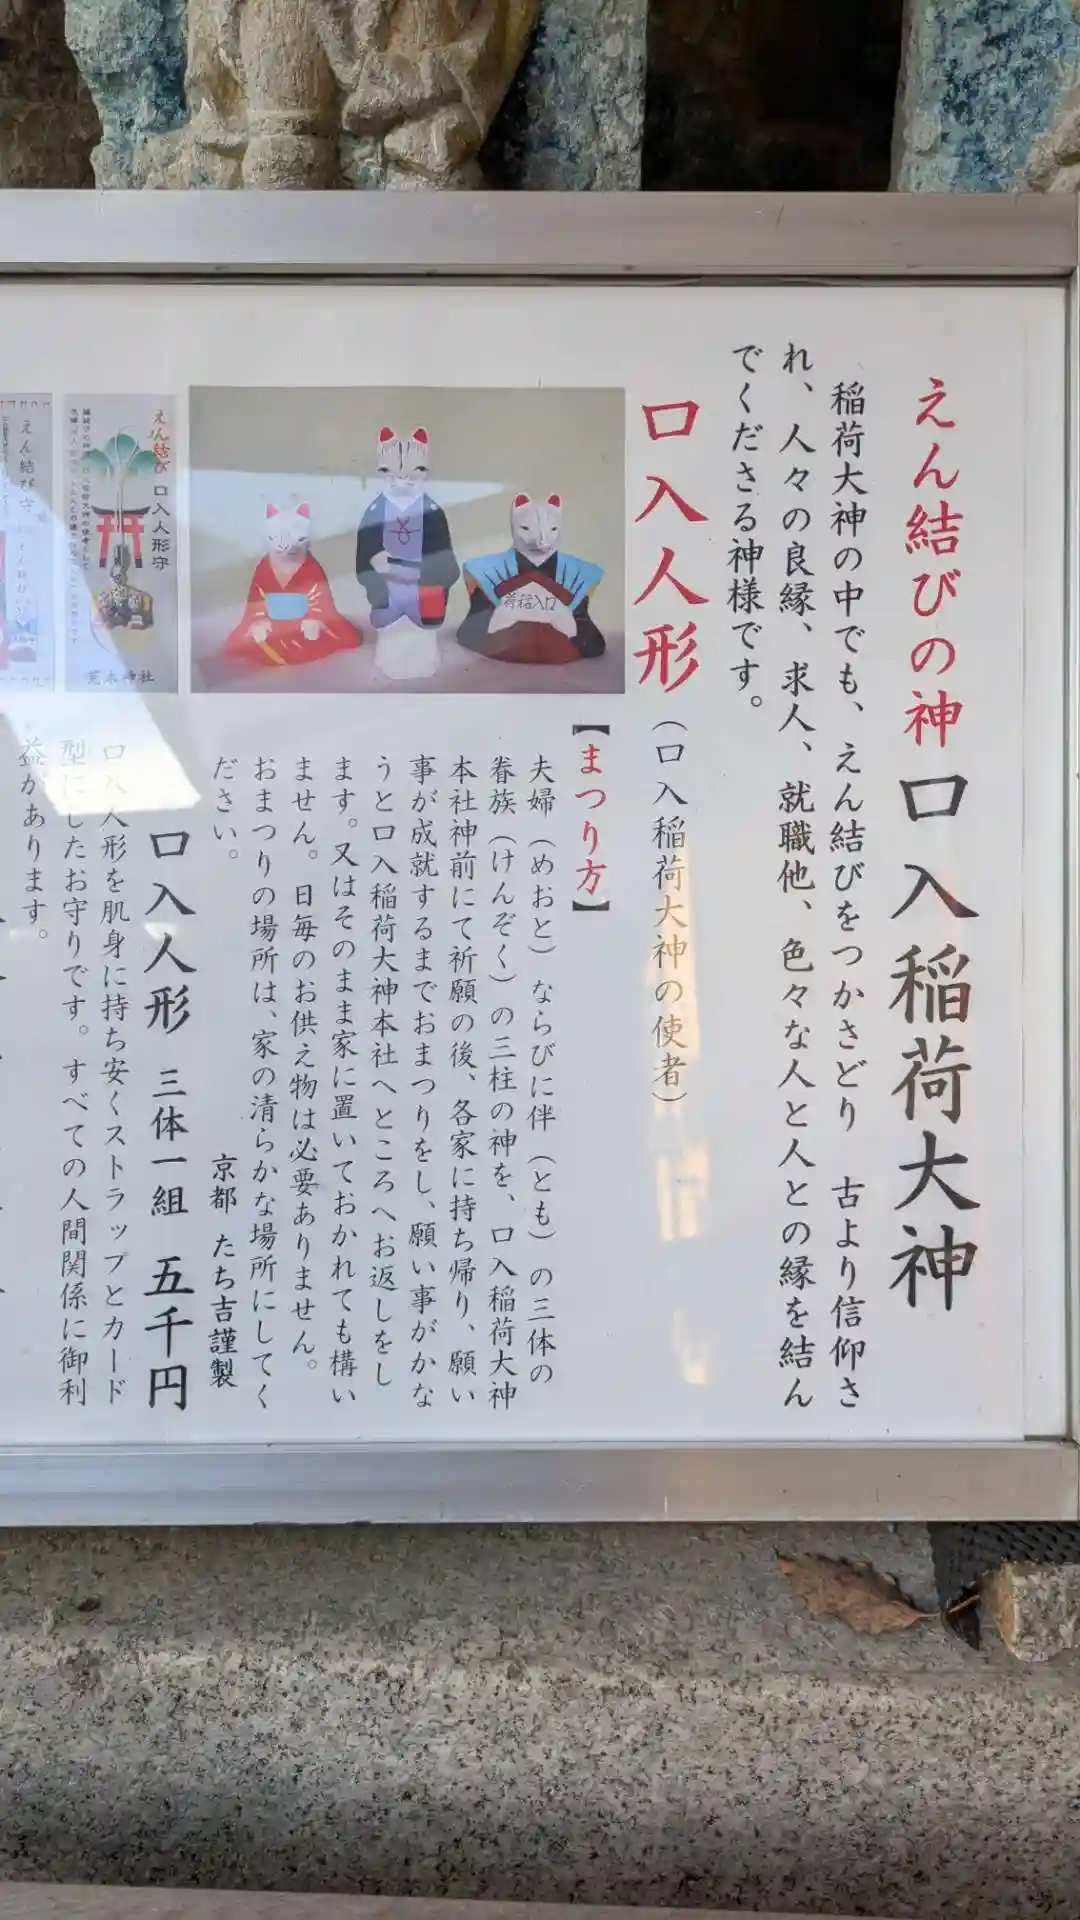 えん結びの神 口入稲荷大神
稲荷大神の中でも、えん結びをつかさどり 古より信仰さ
れ、人々の良縁、求人、就職他、色々な人と人との縁を結ん
でくださる神様です。
口入人形（口入稲荷大神の使者）
【まつり方】
夫婦（めおと）ならびに伴（とも）の三体の
眷族（けんぞく）の三柱の神を、口入稲荷大神
本社神前にて祈願の後、各家に持ち帰り、願い
事が成就するまでおまつりをし、願い事がかな
うと口入稲荷大神本社へところへお返しをし
ます。又はそのまま家に置いておかれても構い
ません。日毎のお供え物は必要ありません。
おまつりの場所は、家の清らかな場所にしてく
ださい。
京都 たち吉謹製
荷稲入口
口入人形 三体一組 五千円
えん結び 口入人形守
荒木神社
えん結び守
口入人形を肌身に持ち安くストラップとカード
型にしたお守りです。すべての人間関係に御利
益があります。